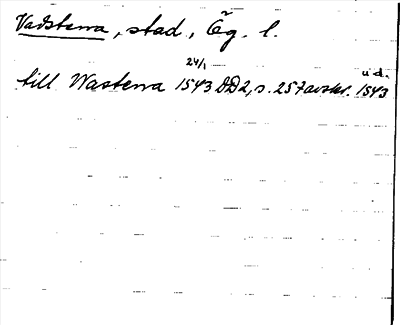 Vadstena, stad, Ög. l.
till Wastena 24/1 1543 DD2, s. 257 avskr. u.d. 1543